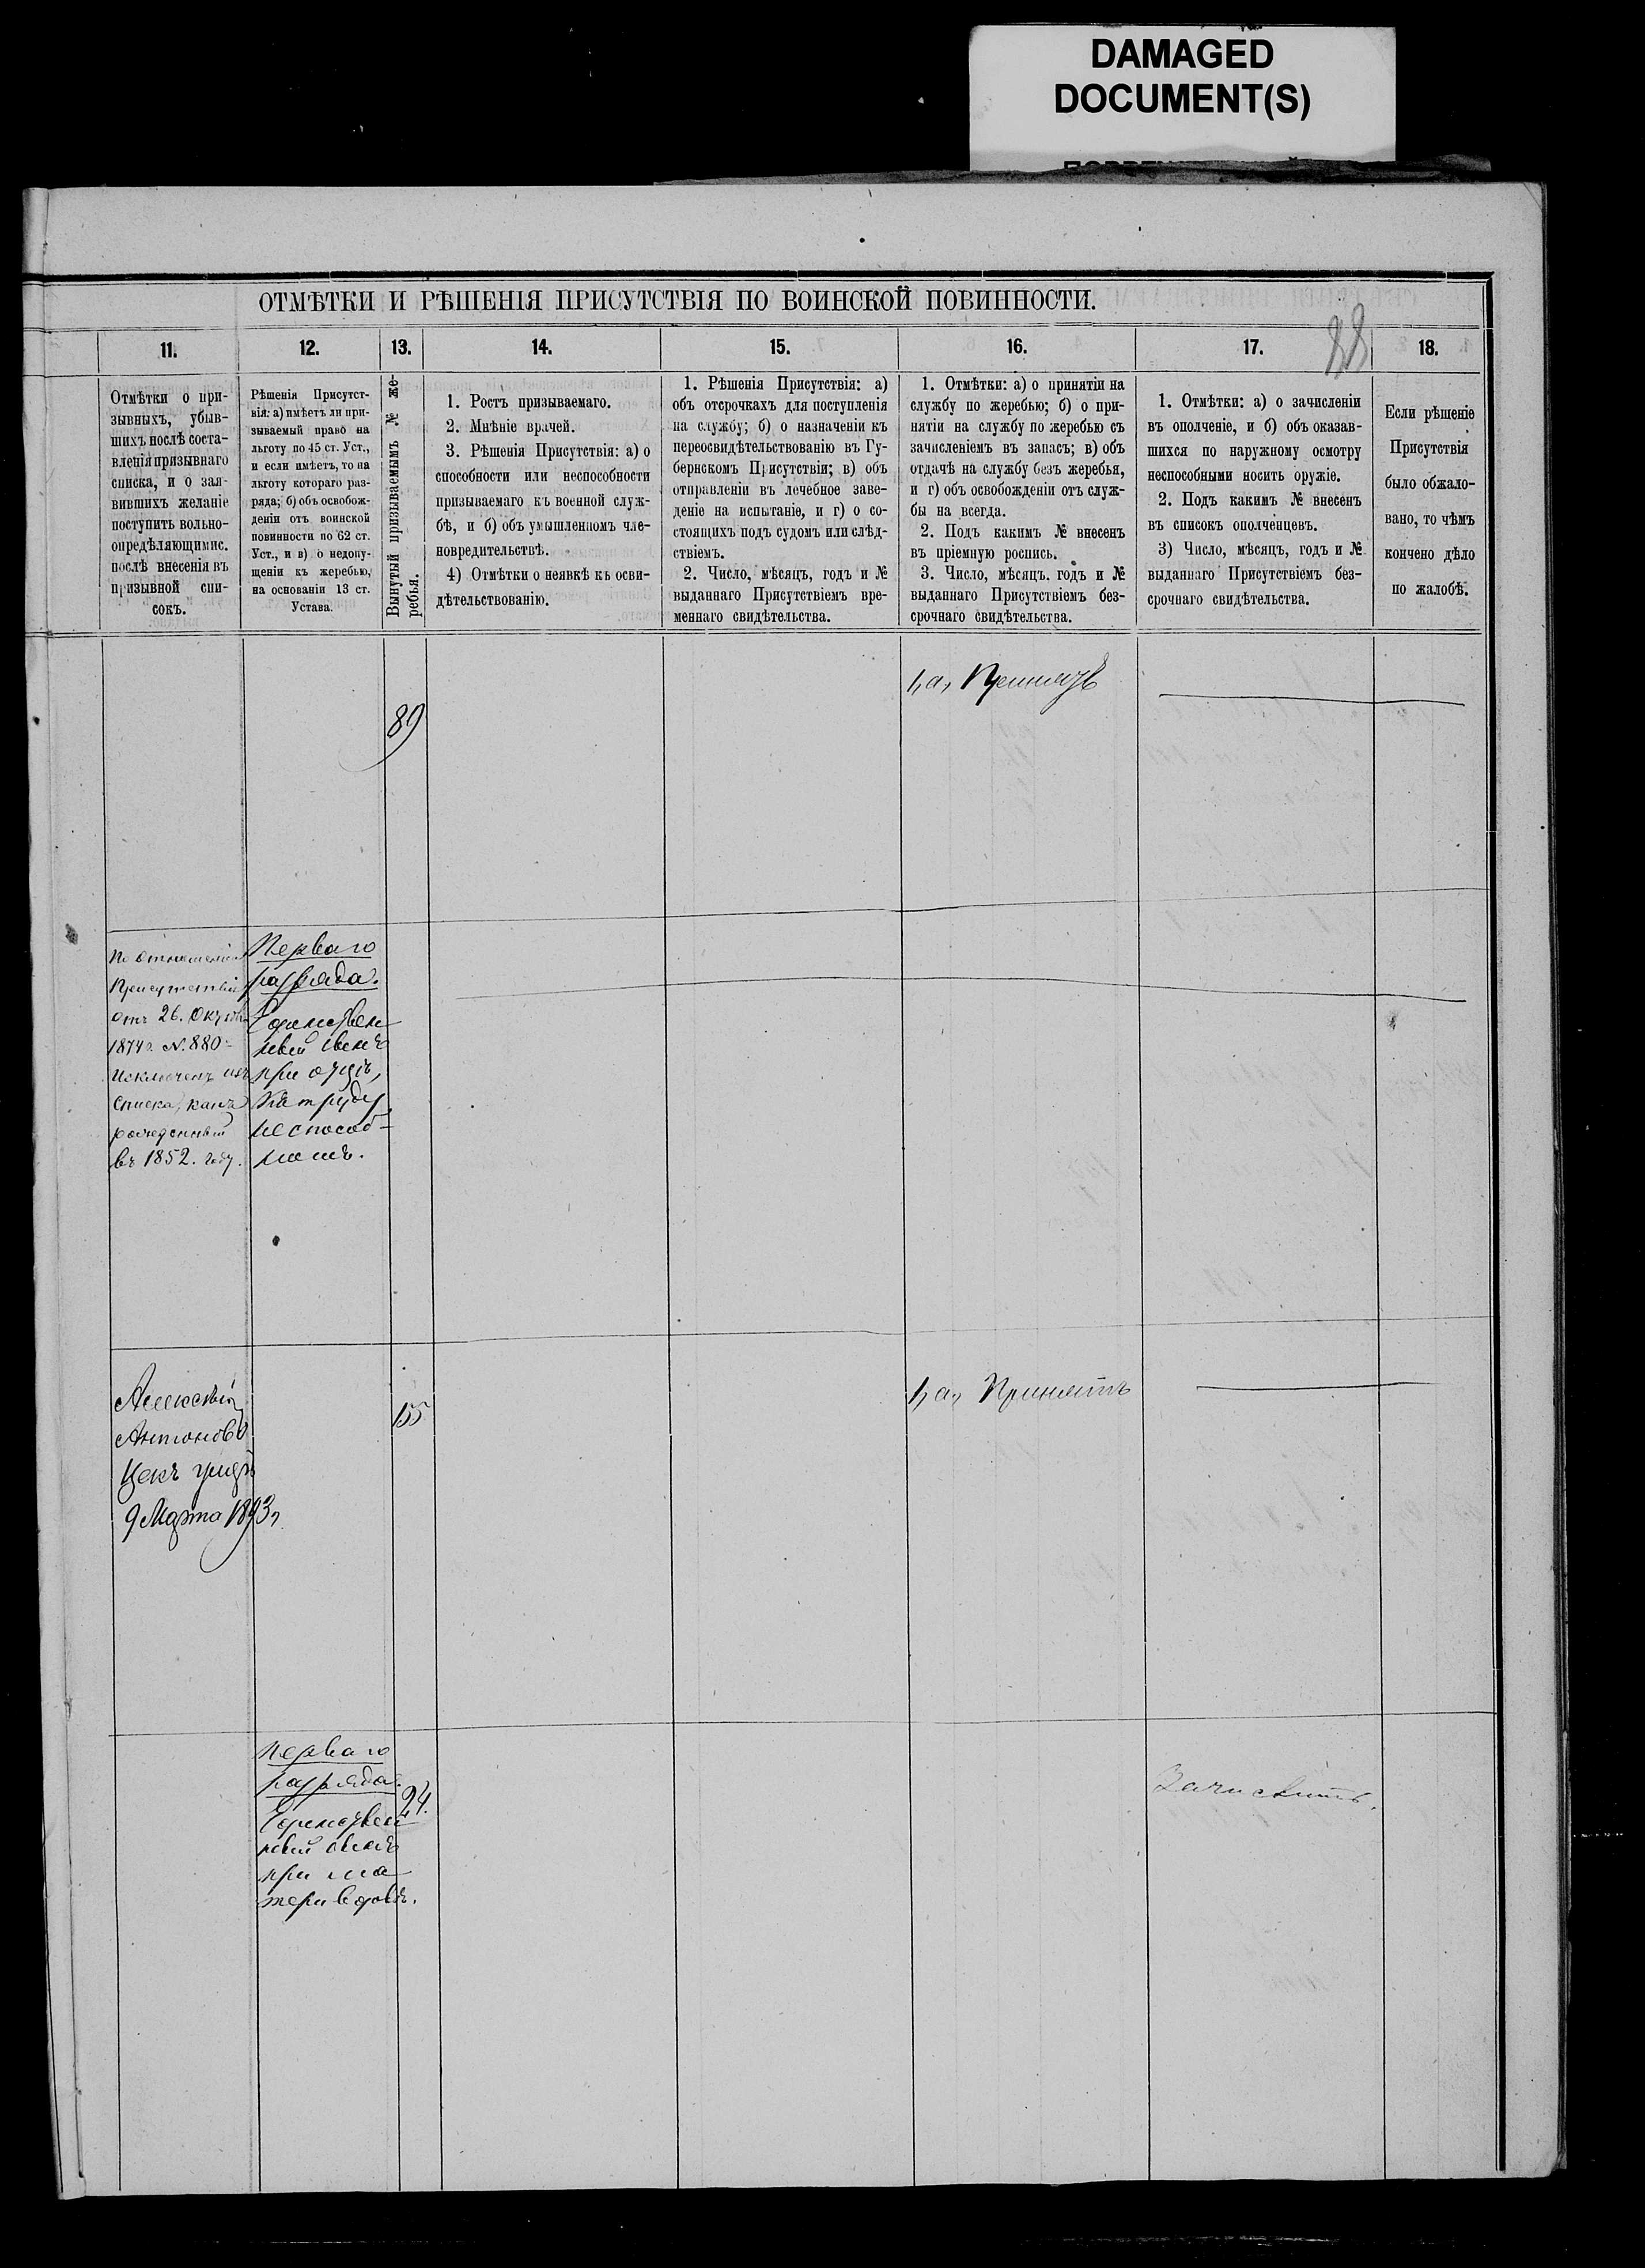 DAMAGED
DOCUMENT(S)
ОТМѢТКИ И РѢШЕНІЯ ПРИСУТСТВІЯ ПО ВОИНСКОЙ ПОВИННОСТИ.
88
11.
12.
13.
14.
15.
16.
17.
18.
Отмѣтки о при-
зывныхъ, убыв-
шихъ послѣ соста-
вленія призывнаго
списка, и о зая-
вившихъ желаніе
поступить вольно-
опредѣляющимис.
послѣ внесенія въ
призывной спи-
сокъ.
Рѣшенія Присутст-
вія: а) имѣетъ ли при-
зываемый право на
льготу по 45 ст. Уст.,
и если имѣетъ, то на
льготу котораго раз-
ряда; б) объ освобож-
деніи отъ воинской
повинности по 62 ст.
Уст., и в) о недопу-
щеніи къ жеребью,
на основаніи 13 ст.
Устава.
Вынутый призываемымъ № же-
ребья.
1. Ростъ призываемаго.
2. Мнѣніе врачей.
3. Рѣшенія Присутствія: а) о
способности или неспособности
призываемаго къ военной служ-
бѣ, и б) объ умышленномъ чле-
новредительствѣ.
4) Отмѣтки о неявкѣ къ осви-
дѣтельствованію.
1. Рѣшенія Присутствія: а)
объ отсрочкахъ для поступленія
на службу; б) о назначеніи къ
переосвидѣтельствованію въ Гу-
бернскомъ Присутствіи; в) объ
отправленіи въ лечебное заве-
деніе на испытаніе, и г) о со-
стоящихъ подъ судомъ или слѣд-
ствіемъ.
2. Число, мѣсяцъ, годъ и №
выданнаго Присутствіемъ вре-
меннаго свидѣтельства.
1. Отмѣтки: а) о принятіи на
службу по жеребью; б) о при-
нятіи на службу по жеребью съ
зачисленіемъ въ запасъ; в) объ
отдачѣ на службу безъ жеребья,
и г) объ освобожденіи отъ служ-
бы на всегда.
2. Подъ какимъ № внесенъ
въ пріемную роспись.
3. Число, мѣсяцъ. годъ и №
выданнаго Присутствіемъ без-
срочнаго свидѣтельства.
1. Отмѣтки: а) о зачисленіи
въ ополченіе, и б) объ оказав-
шихся по наружному осмотру
неспособными носить оружіе.
2. Подъ какимъ № внесенъ
въ списокъ ополченцевъ.
3) Число, мѣсяцъ, годъ и №
выданнаго Присутствіемъ без-
срочнаго свидѣтельства.
Если рѣшеніе
Присутствія
было обжало-
вано, то чѣмъ
кончено дѣло
по жалобѣ.
89
1, а, Принятъ
По отношенію
Присутствія
отъ 26. Октября
1874 г. №. 880-
Исключенъ изъ
Списка, какъ
рожденный
въ 1852. году.
Перваго
разряда.
Единствен
ный сынъ
при отцѣ,
къ труду
неспособ-
номъ.
Алексѣй
Антоновъ
9 Марта
155
1, а, Принятъ
Перваго
разряда.
Единствен
ный сынъ
при ма
тери вдовѣ.
24.
Зачислить.